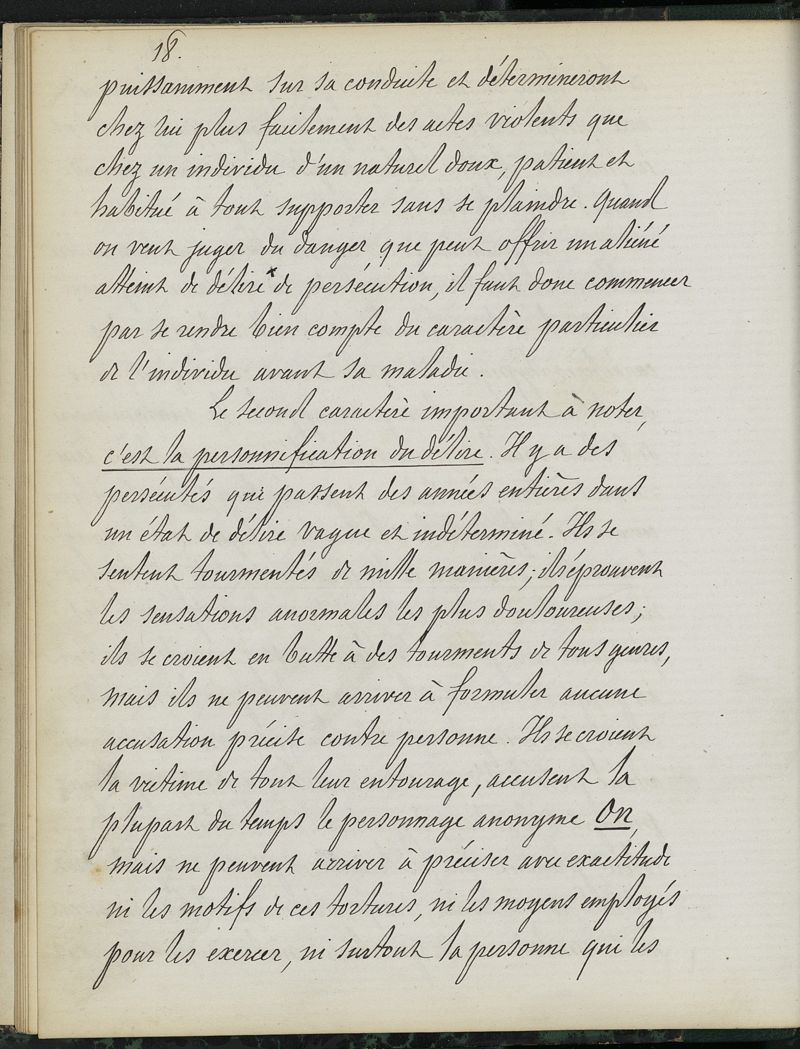 18.
puissamment sur sa conduite et détermineront
chez lui plus facilement des actes violents que
chez un individu d'un naturel doux, patient et
habitué à tout supporter sans se plaindre. Quand
on veut juger du danger que peut offrir un aliéné
atteint de délire de persécution, il faut donc commencer
par se rendre bien compte du caractère particulier
de l'individu avant sa maladie.
Le second caractère important à noter,
c'est la personnification du délire. Il y a des
persécutés qui passent des années entières dans
un état de délire vague et indéterminé. Ils se
sentent tourmentés de mille manières; ils éprouvent
les sensations anormales les plus douloureuses;
ils se croient en butte à des tourments de tous genres,
mais ils ne peuvent arriver à formuler aucune
accusation précise contre personne. Ils se croient
la victime de tout leur entourage, accusent la
plupart du temps le personnage anonyme On,
mais ne peuvent arriver à préciser avec exactitude
ni les motifs de ces tortures, ni les moyens employés
pour les exercer, ni surtout la personne qui les